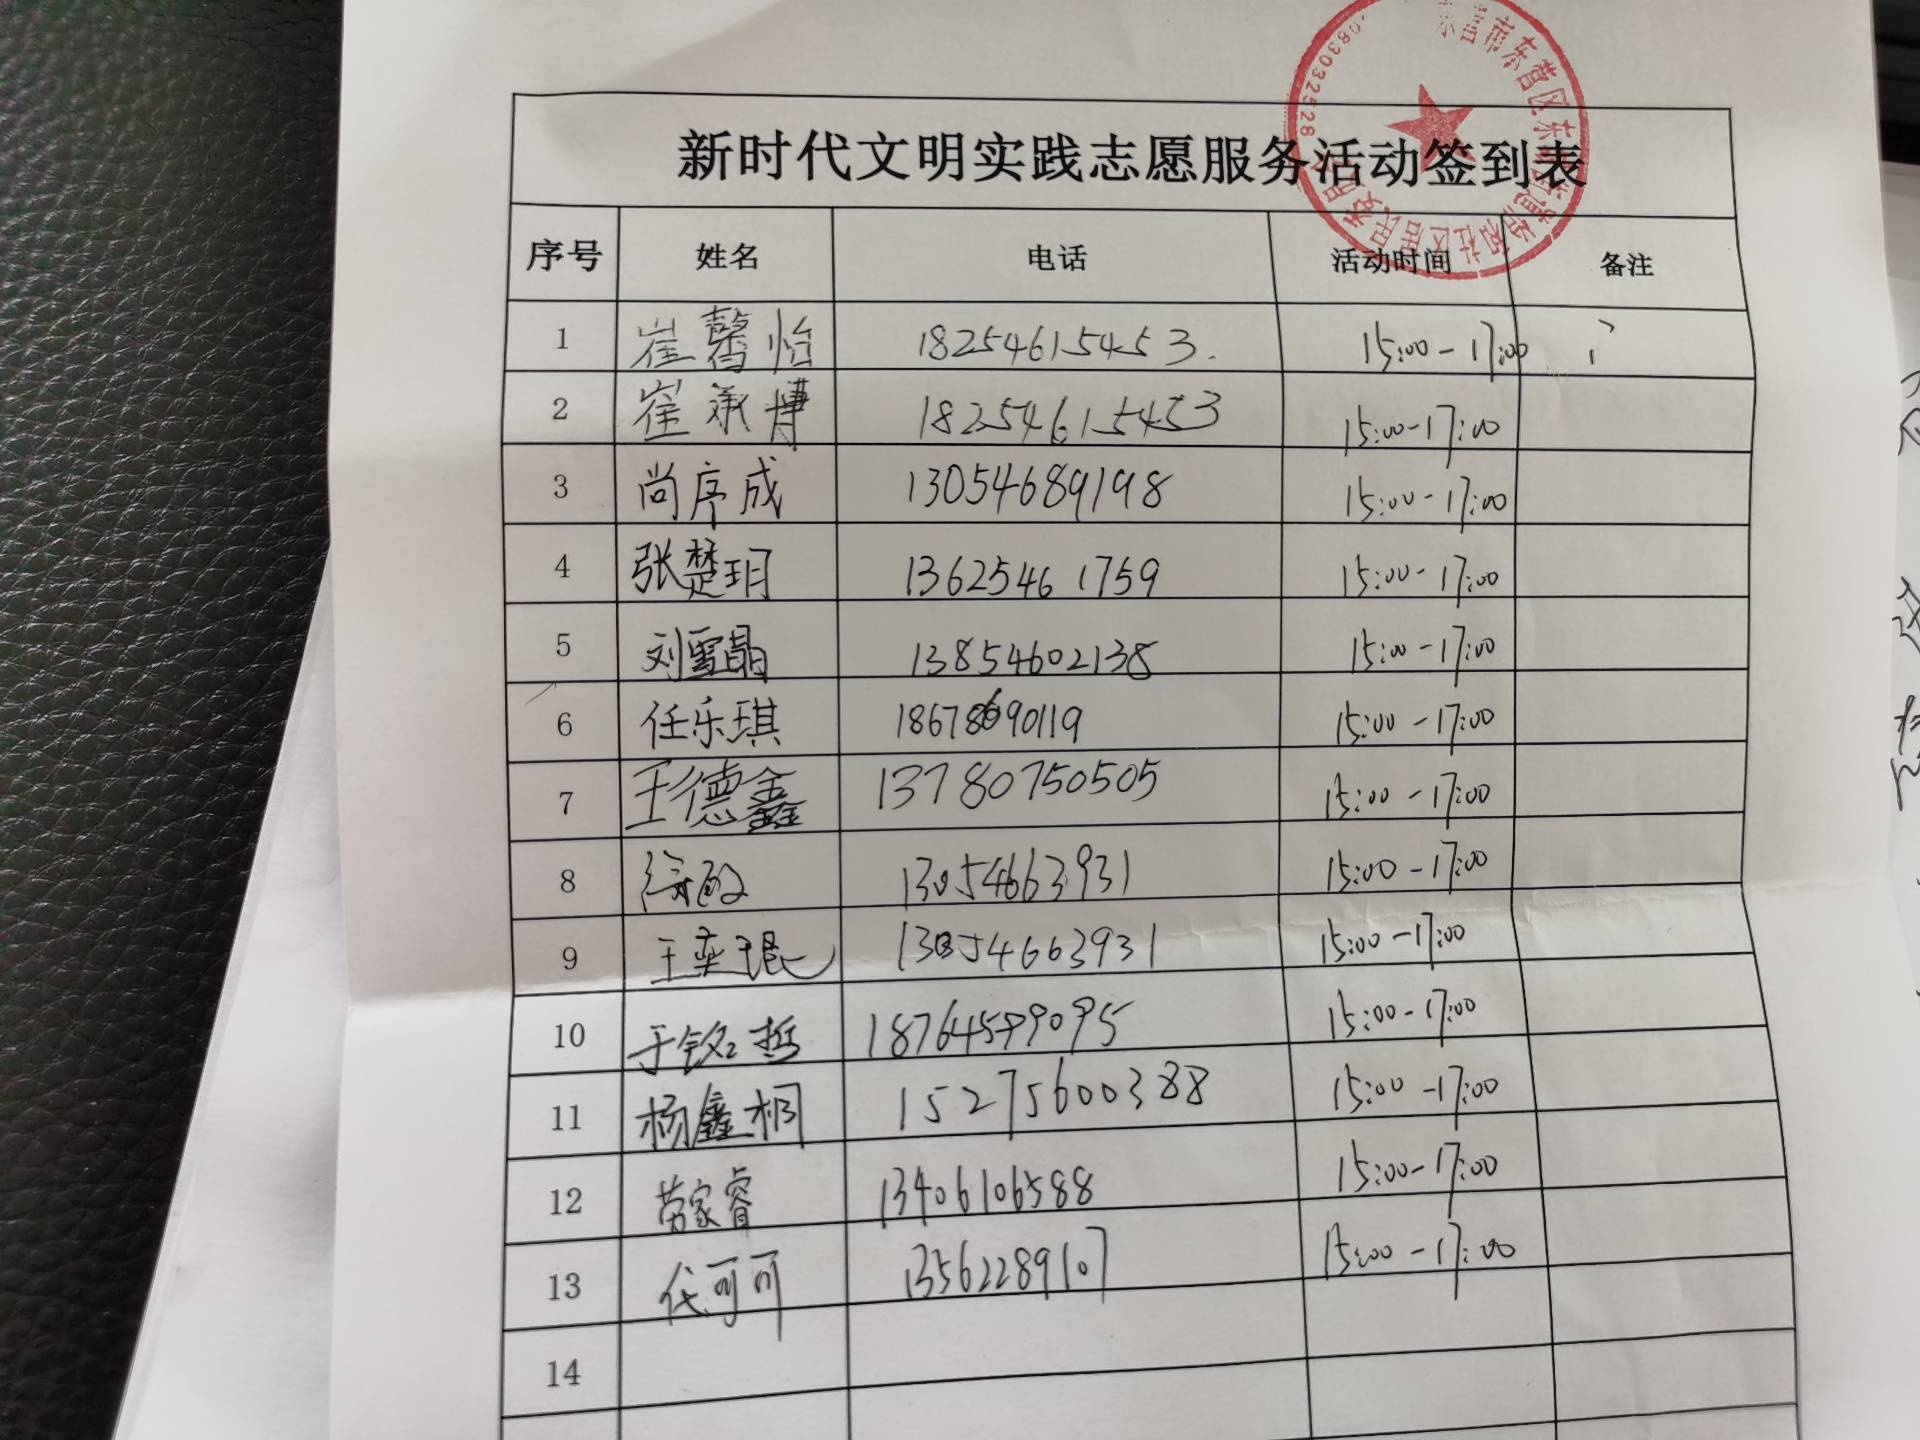 新时代文明实践志愿服务活动签到表
序号 姓名 电话 活动时间 备注
1 崔馨怡 18254615453. 15:00-17:00
2 崔承博 18254615453 15:00-17:00
3 尚序成 13054689198 15:00-17:00
4 张楚玥 13625461759 15:00-17:00
5 刘雪晶 13854602138 15:00-17:00
6 任乐琪 18678690119 15:00-17:00
7 王德鑫 13780750505 15:00-17:00
8 13054663931 15:00-17:00
9 王奕琨 13054663931 15:00-17:00
10 于铭哲 18764599095 15:00-17:00
11 杨鑫桐 15275600388 15:00-17:00
12 劳家睿 13406106588 15:00-17:00
13 代可可 13562289107 15:00-17:00
14